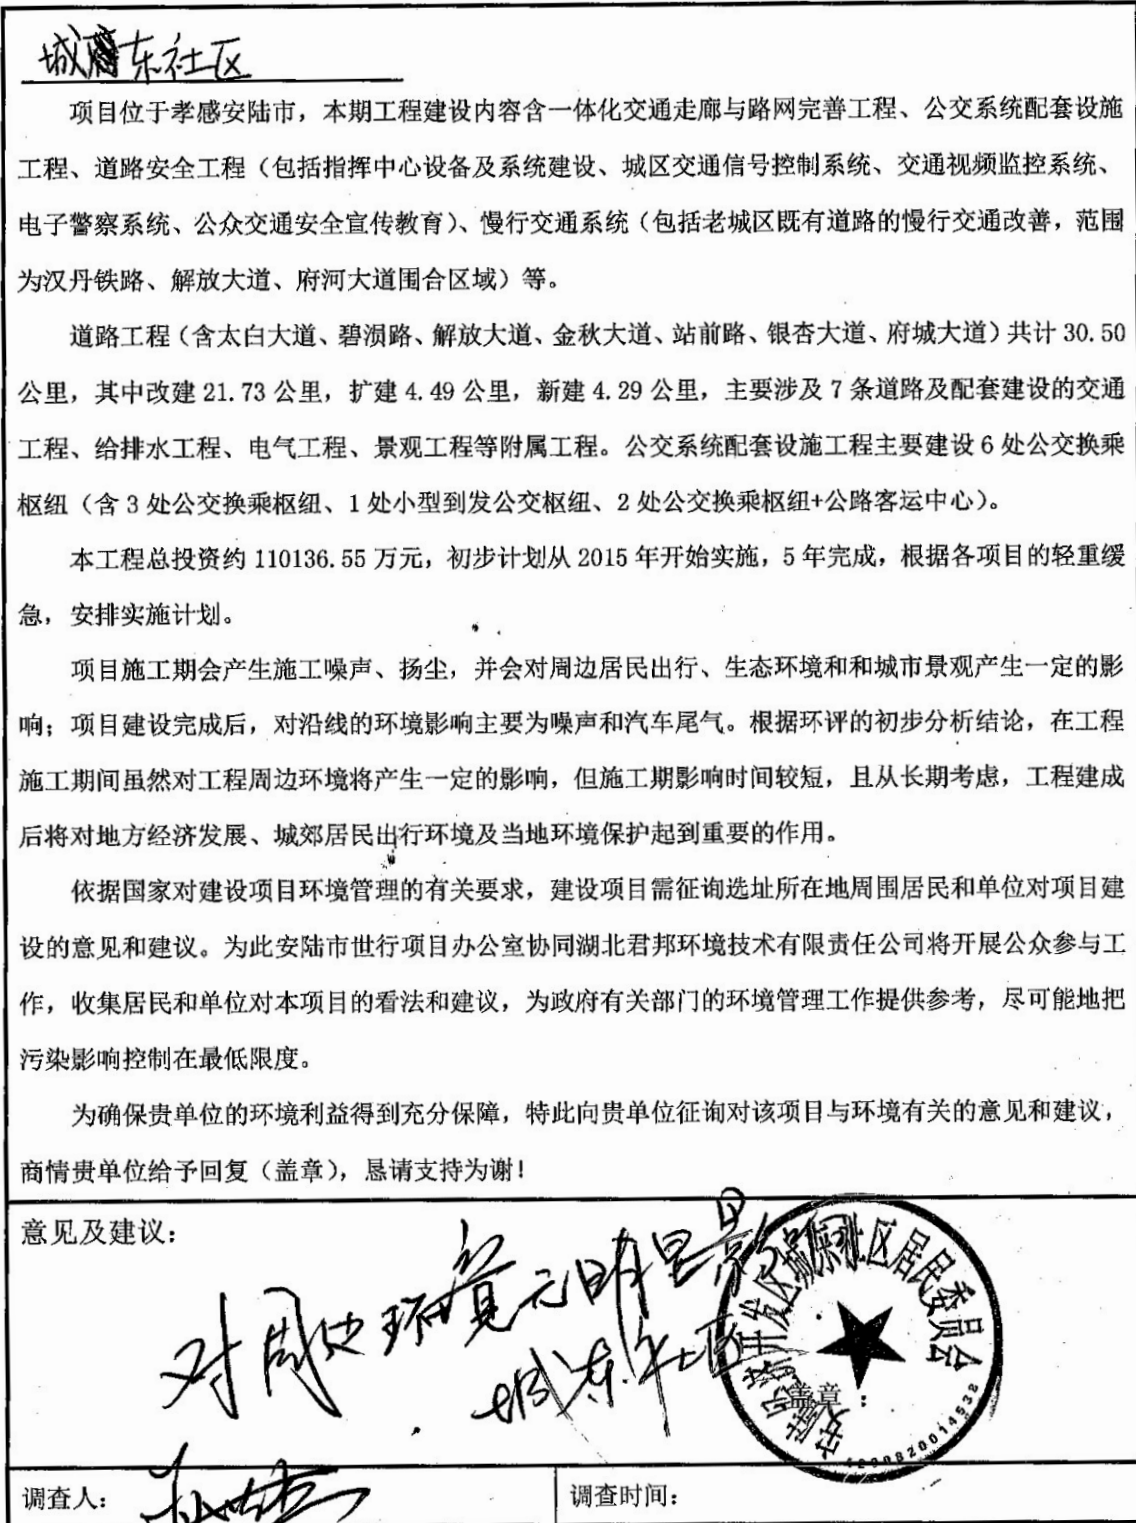 城东社区
项目位于孝感安陆市，本期工程建设内容含一体化交通走廊与路网完善工程、公交系统配套设施
工程、道路安全工程（包括指挥中心设备及系统建设、城区交通信号控制系统、交通视频监控系统、
电子警察系统、公众交通安全宣传教育）、慢行交通系统（包括老城区既有道路的慢行交通改善，范围
为汉丹铁路、解放大道、府河大道围合区域）等。
道路工程（含太白大道、碧涢路、解放大道、金秋大道、站前路、银杏大道、府城大道）共计 30.50
公里，其中改建 21.73 公里，扩建 4.49 公里，新建 4.29 公里，主要涉及 7 条道路及配套建设的交通
工程、给排水工程、电气工程、景观工程等附属工程。公交系统配套设施工程主要建设 6 处公交换乘
枢纽（含 3 处公交换乘枢纽、1 处小型到发公交枢纽、2 处公交换乘枢纽+公路客运中心）。
本工程总投资约 110136.55 万元，初步计划从 2015 年开始实施，5 年完成，根据各项目的轻重缓
急，安排实施计划。
项目施工期会产生施工噪声、扬尘，并会对周边居民出行、生态环境和和城市景观产生一定的影
响；项目建设完成后，对沿线的环境影响主要为噪声和汽车尾气。根据环评的初步分析结论，在工程
施工期间虽然对工程周边环境将产生一定的影响，但施工期影响时间较短，且从长期考虑，工程建成
后将对地方经济发展、城郊居民出行环境及当地环境保护起到重要的作用。
依据国家对建设项目环境管理的有关要求，建设项目需征询选址所在地周围居民和单位对项目建
设的意见和建议。为此安陆市世行项目办公室协同湖北君邦环境技术有限责任公司将开展公众参与工
作，收集居民和单位对本项目的看法和建议，为政府有关部门的环境管理工作提供参考，尽可能地把
污染影响控制在最低限度。
为确保贵单位的环境利益得到充分保障，特此向贵单位征询对该项目与环境有关的意见和建议，
商情贵单位给予回复（盖章），恳请支持为谢！
意见及建议：
对周边环境无明显影
城东社区
开发区城东社区居民委员会
盖章：
调查人：
调查时间：